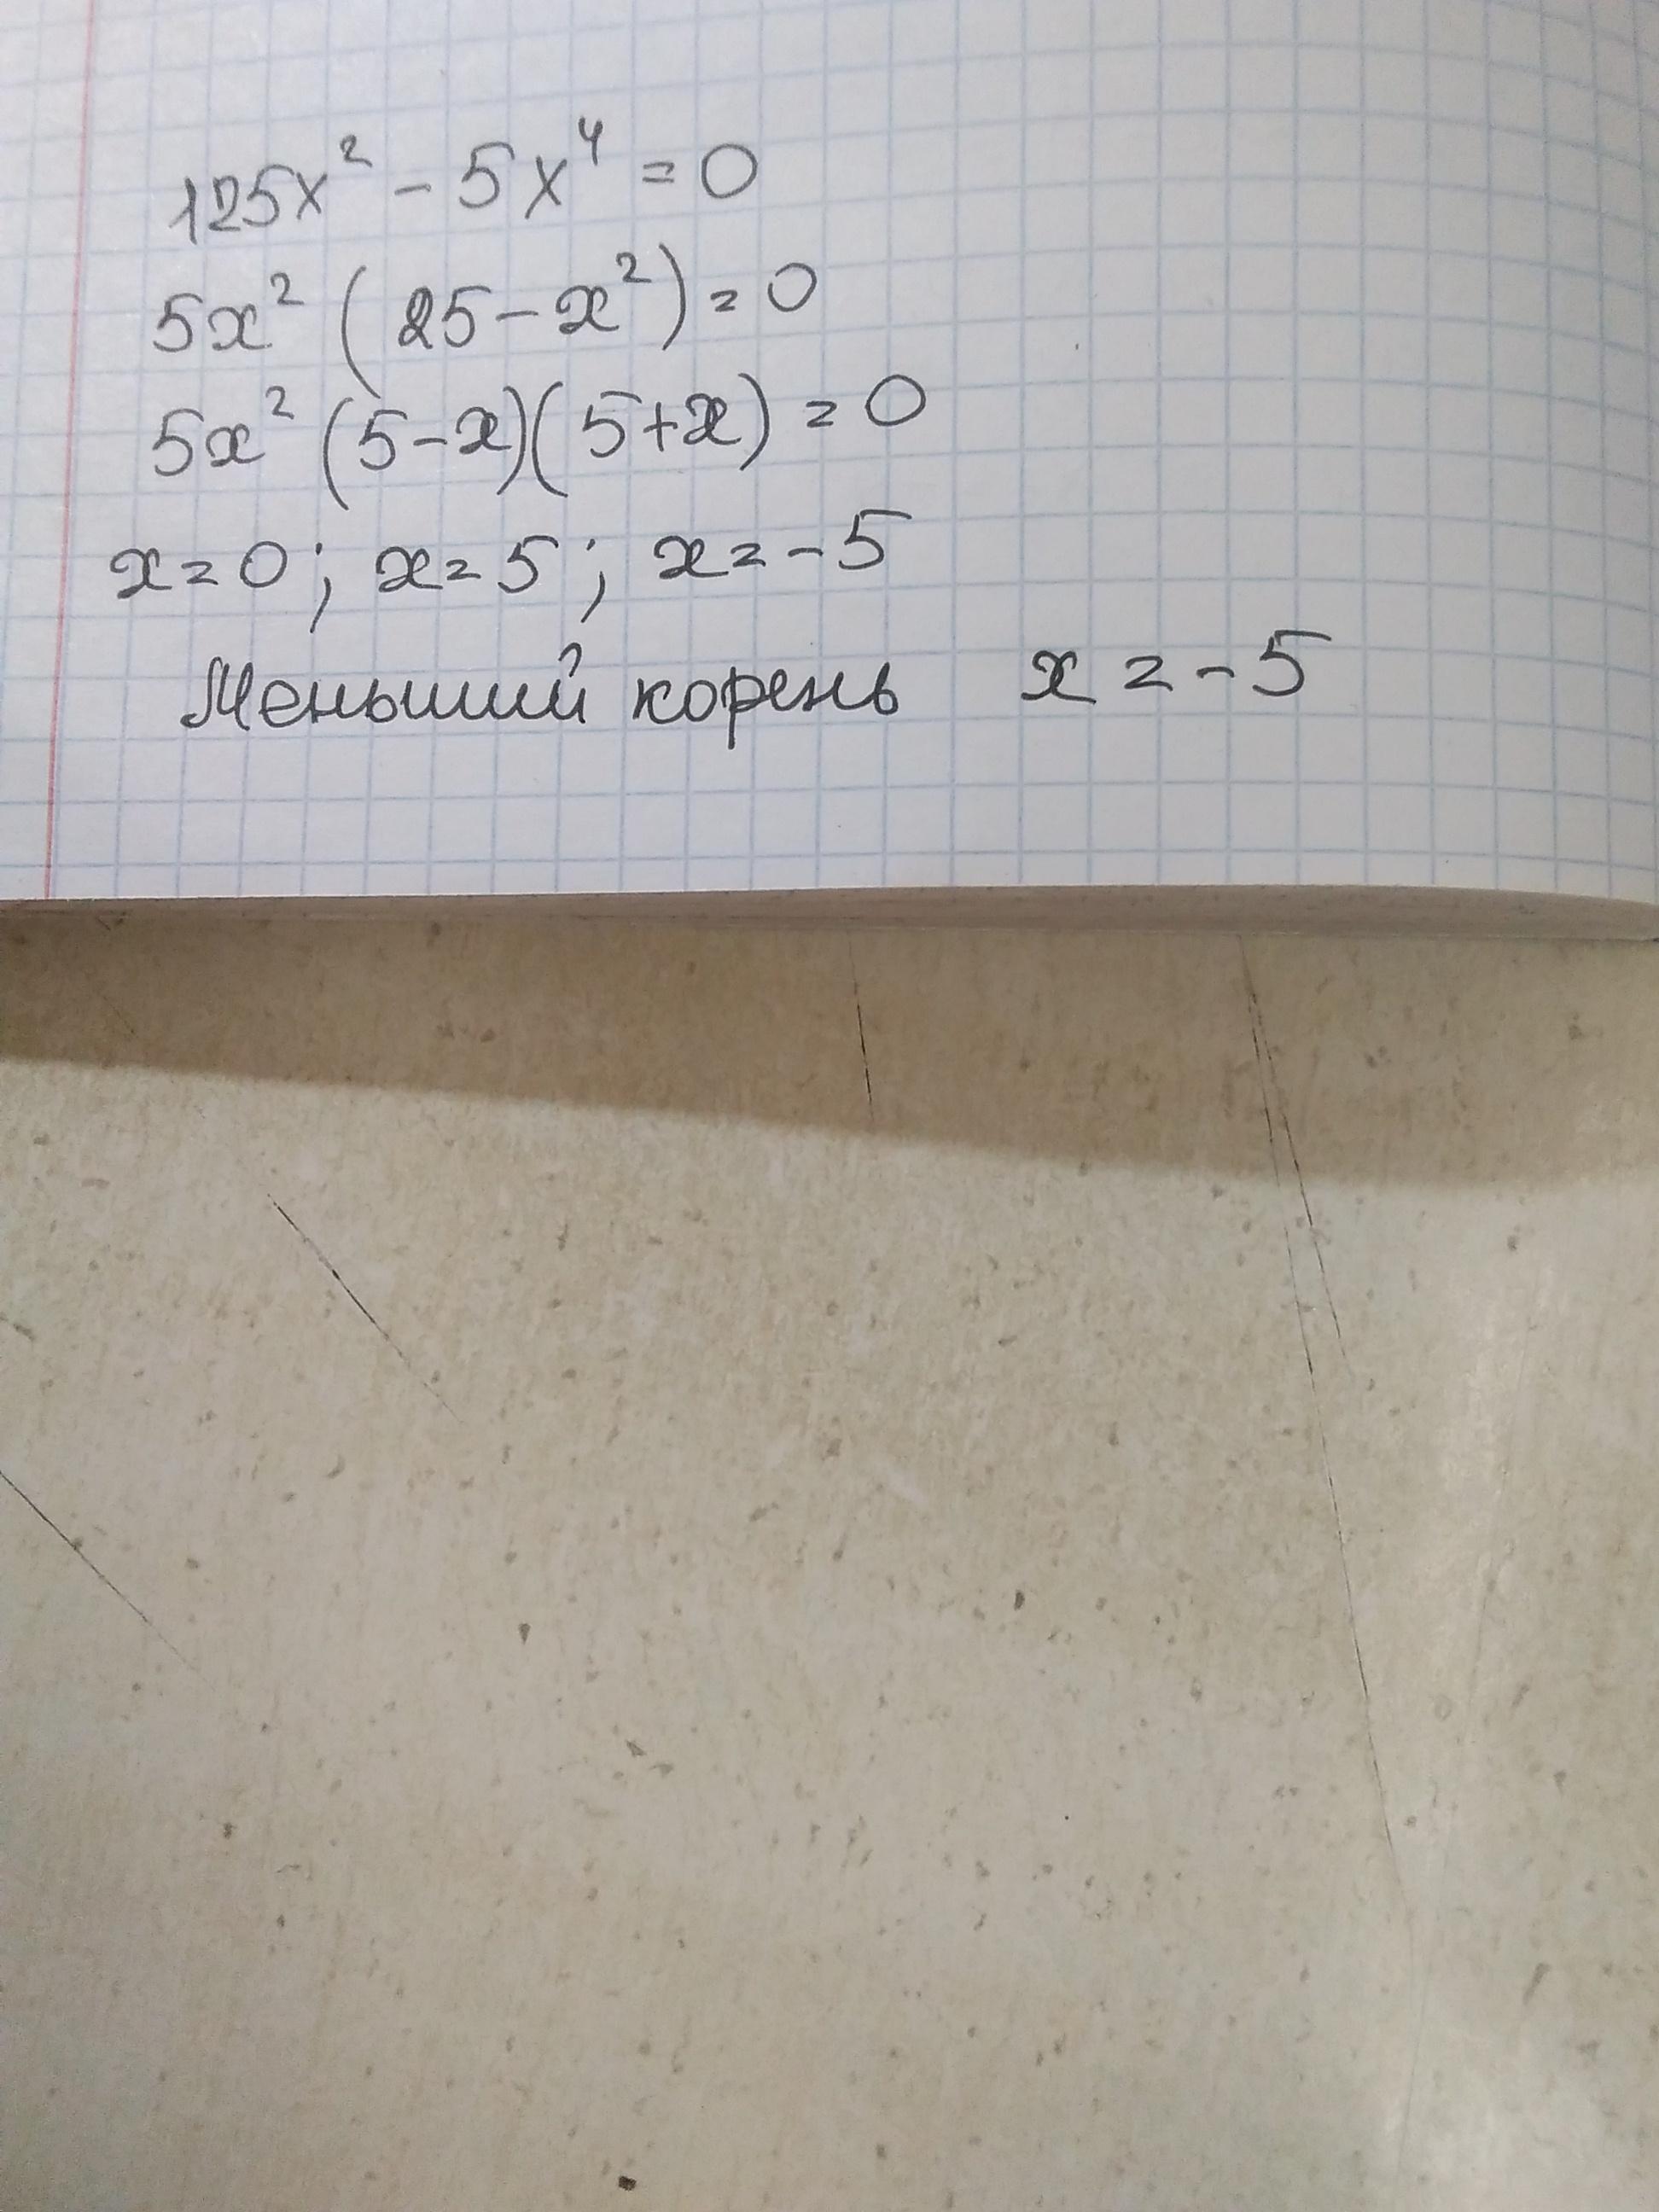 125x² - 5x⁴ = 0
5x² (25 - x²) = 0
5x² (5 - x)(5 + x) = 0
x = 0; x = 5; x = -5
Меньший корень x = -5